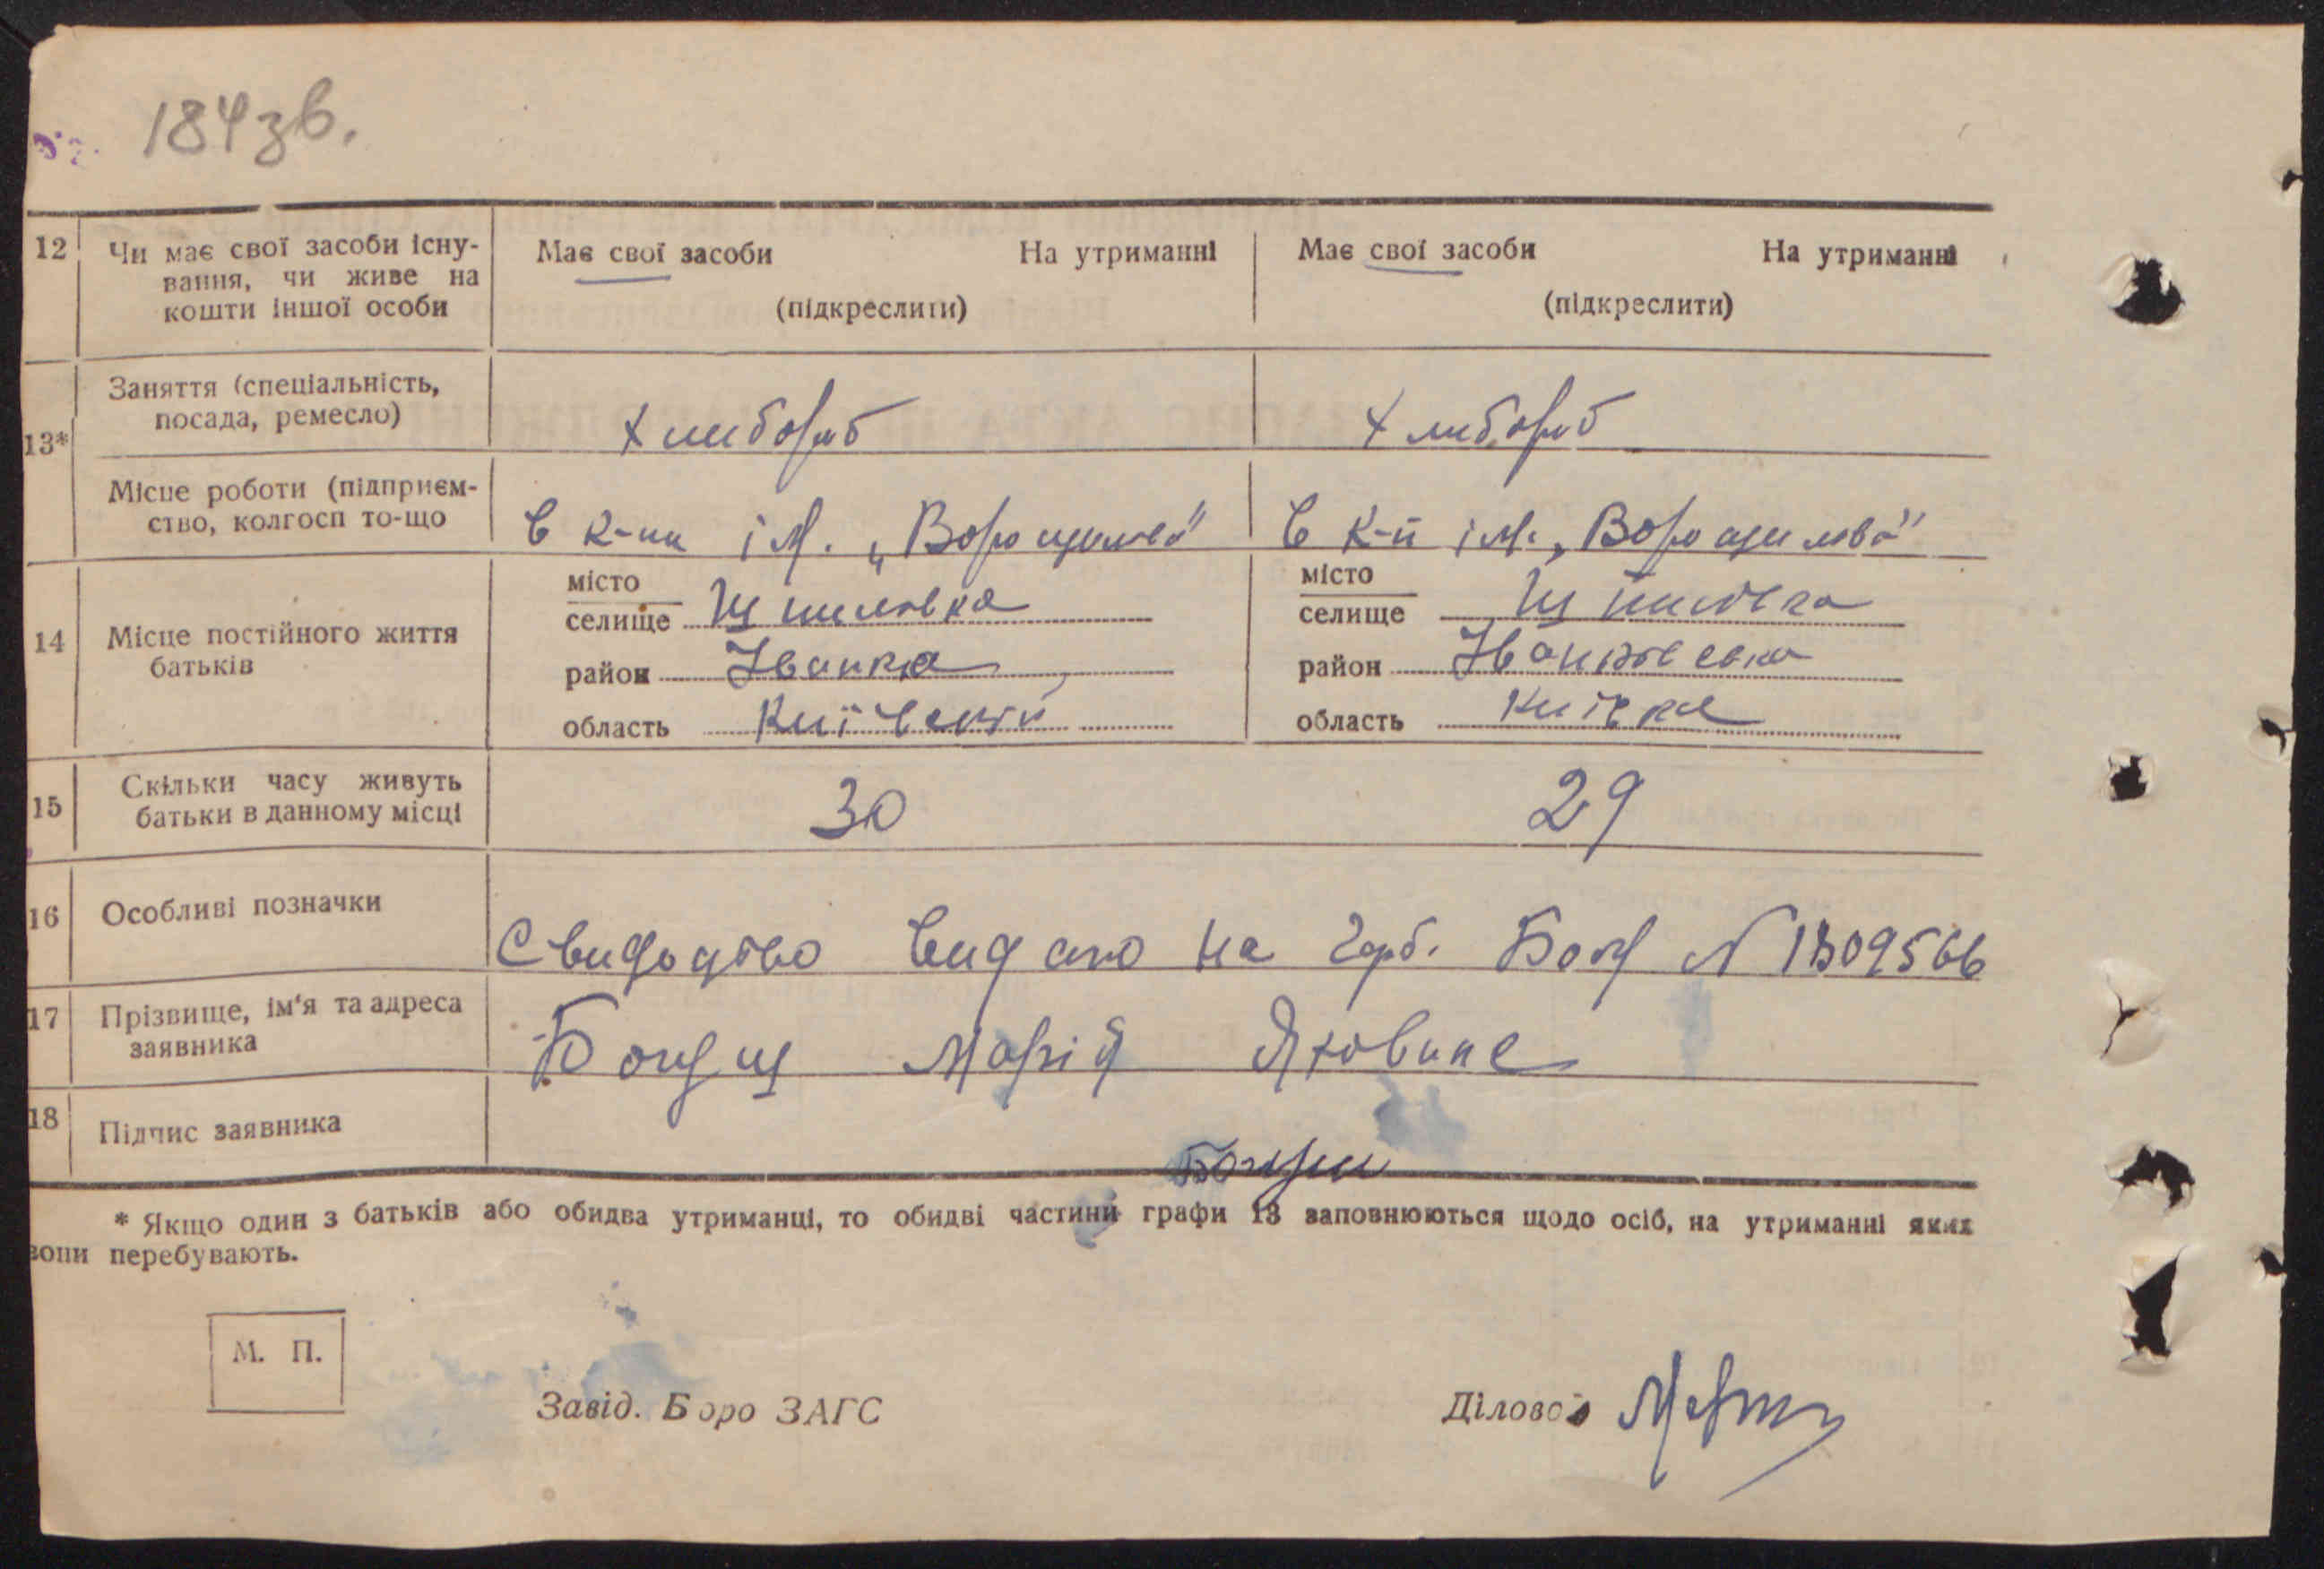 184 зв.
12 Чи має свої засоби існу- Має свої засоби На утриманні Має свої засоби На утриманні
вання, чи живе на
кошти іншої особи (підкреслити) (підкреслити)
Заняття (спеціальність,
посада, ремесло) Хлибороб Хлибороб
13*
Місце роботи (підприєм-
ство, колгосп то-що В к-пи ім. „Ворошилова" В к-п ім. „Ворошилова"
місто місто
селище Шпиловка селище
14 Місце постійного життя
батьків район район
область Київский область
15 Скільки часу живуть
батьки в данному місці 30 29
16 Особливі позначки
Свидоцтво видано на герб. N 1309566
17 Прізвище, ім'я та адреса
заявника Марія Яковывне
18 Підпис заявника
* Якщо один з батьків або обидва утриманці, то обидві частини графи 13 заповнюються щодо осіб, на утриманні яких
вони перебувають.
М. П.
Завід. Бюро ЗАГС Діловод